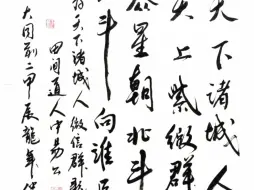 天下诸城人
天上紫微群
星朝北斗
斗向谁
天下诸城人微信群歌
田间道人中易公
大同前二甲辰龙年仲